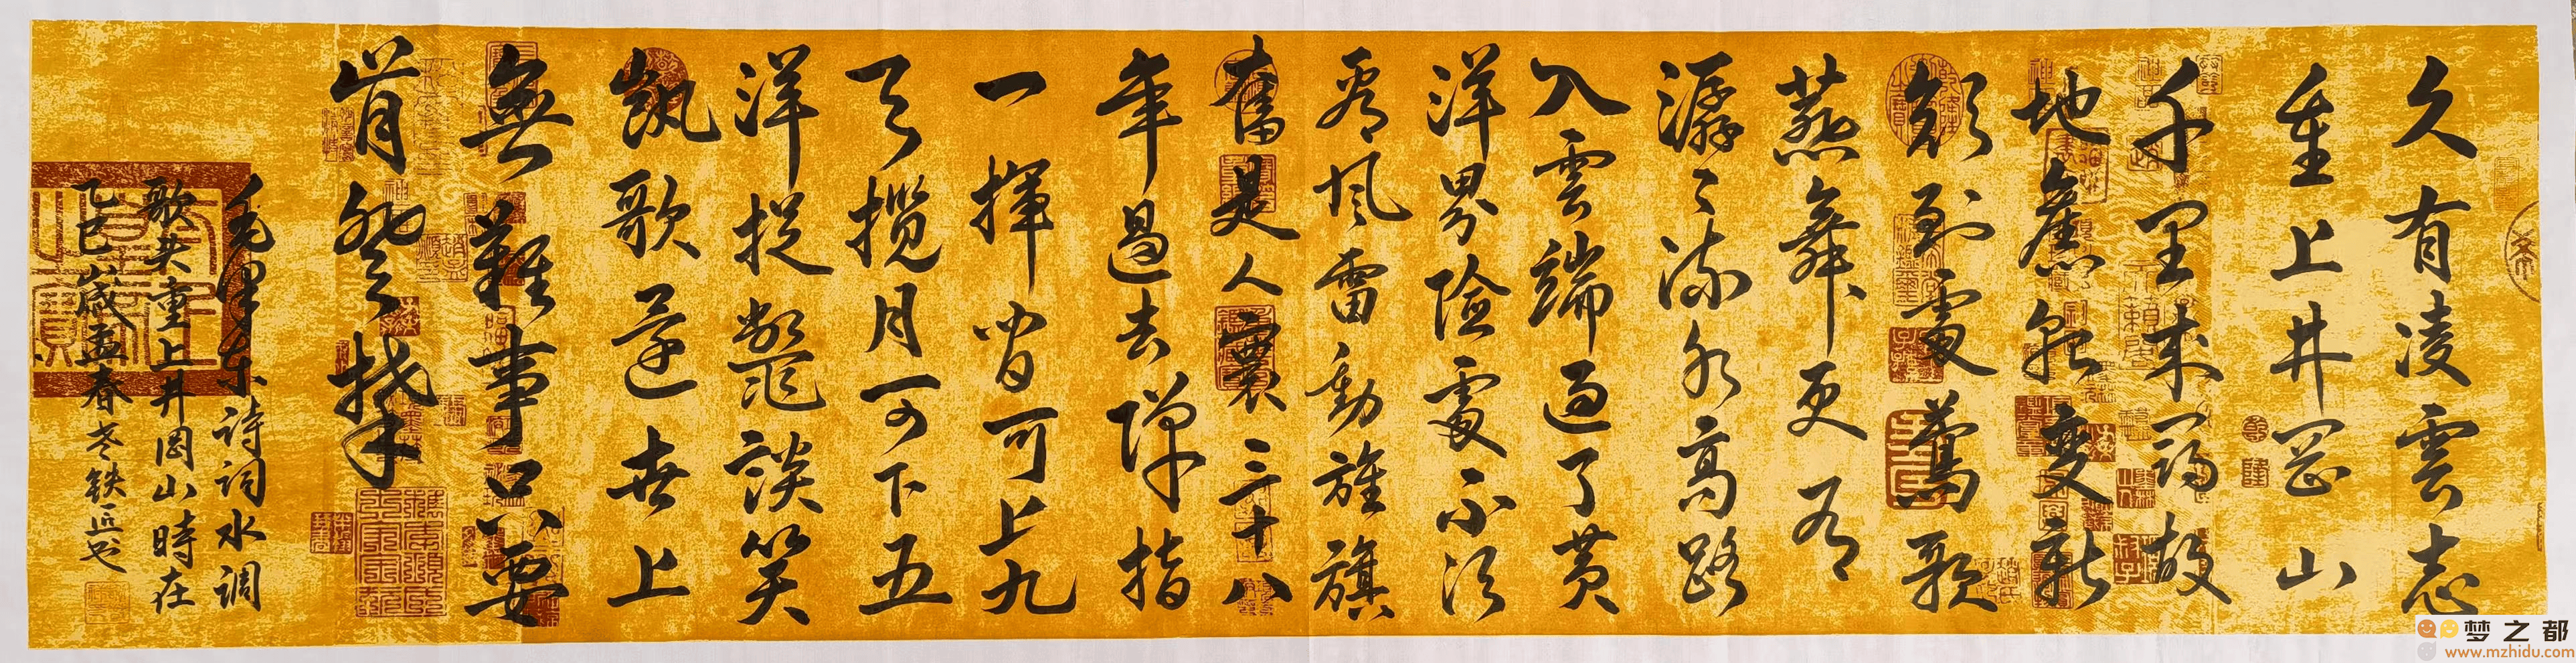 久有凌雲志
重上井岡山
千里來尋故
地舊貌變新
顏到處鶯歌
燕舞更有
潺々流水高路
入雲端過了黃
洋界險處不須
看風雷動旌旗
奮是人寰三十八
年過去彈指
一揮間可上九
天攬月可下五
洋捉鱉談笑
凱歌還世上
無難事只要
肯登攀
毛澤东詩词水調
歌头重上井岡山時在
乙巳歲孟春老铁匠书
梦之都
www.mzhidu.com